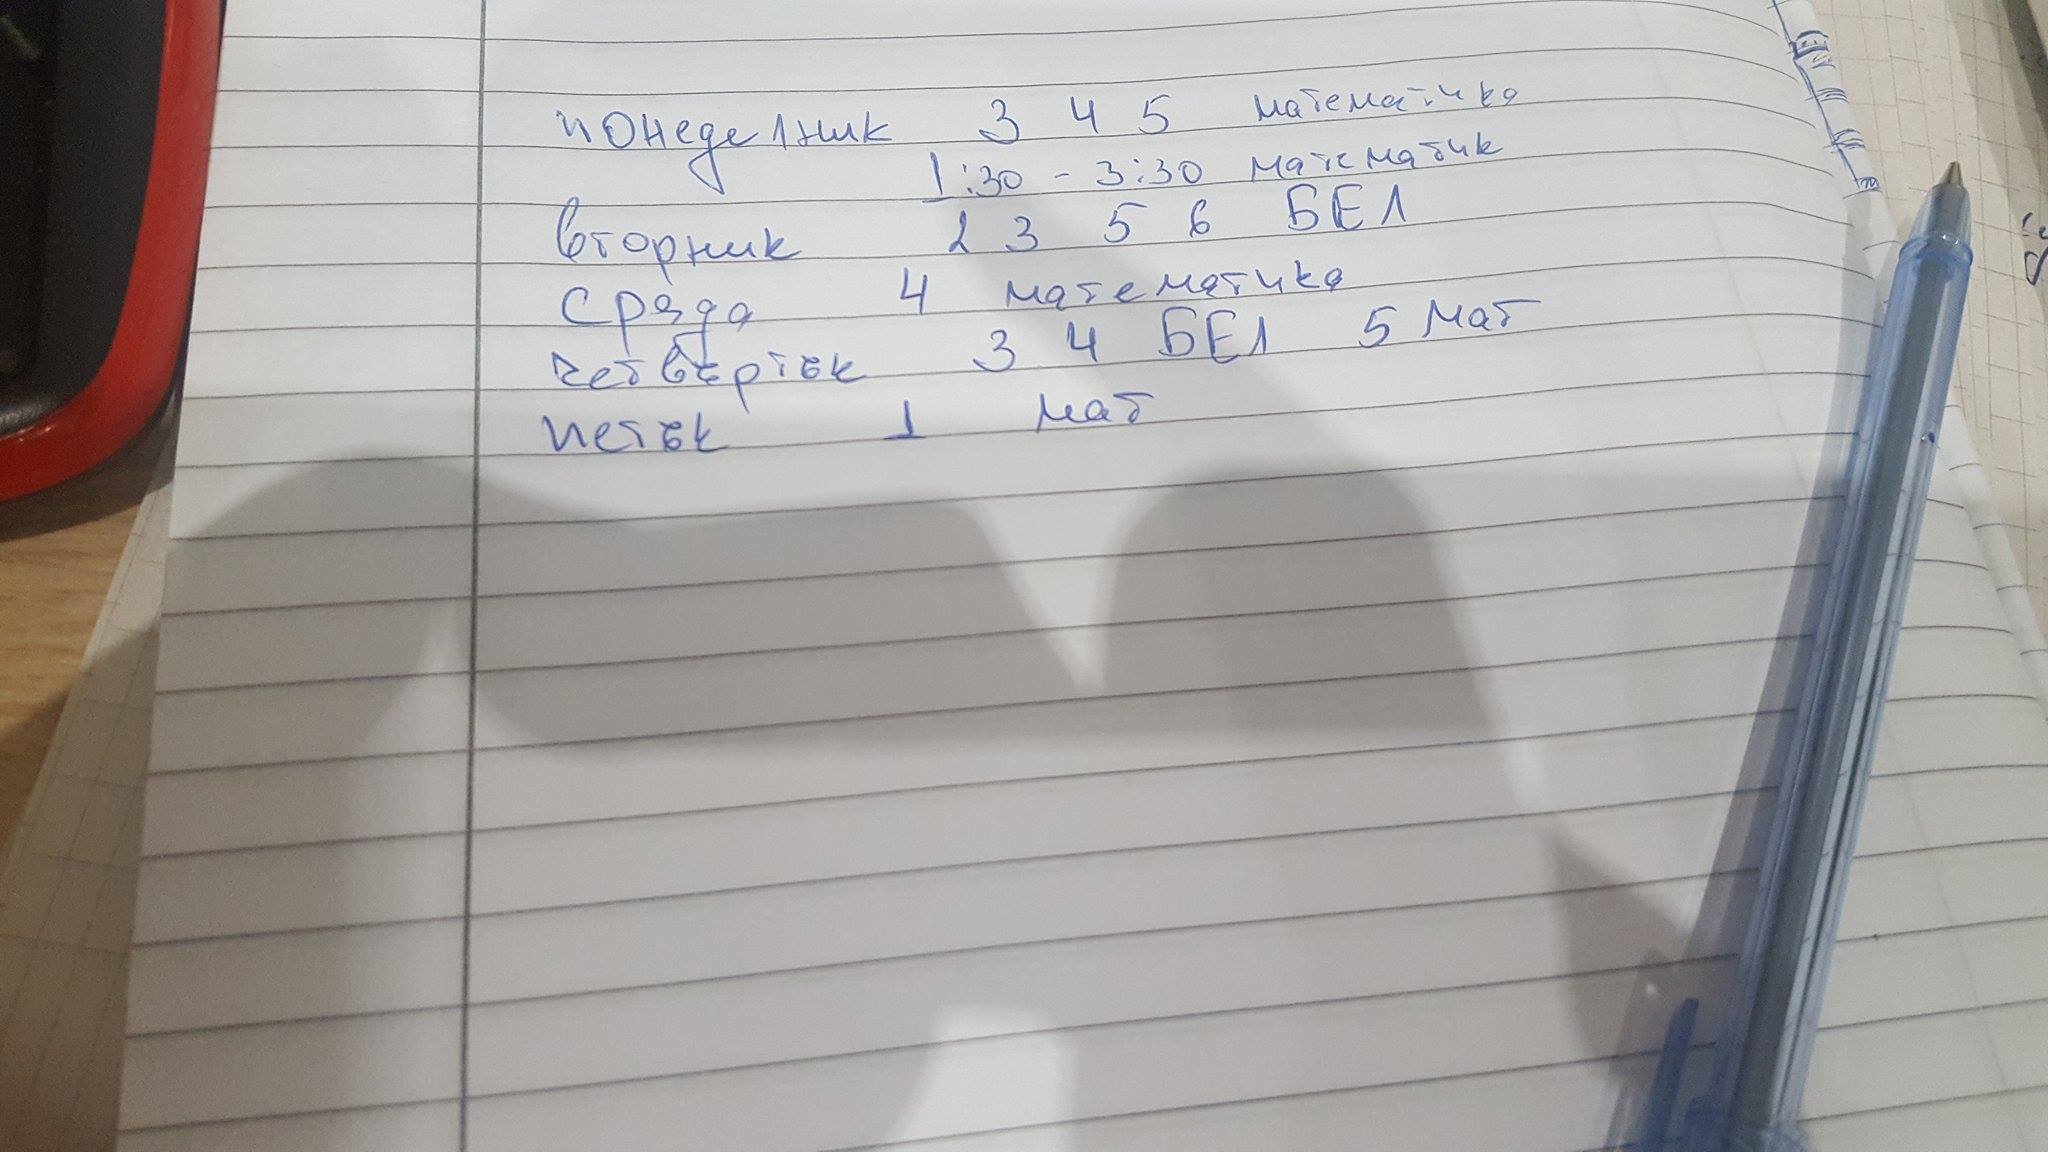 понеделник 3 4 5 математика
1:30 - 3:30 математик
вторник 2 3 5 6 БЕЛ
сряда 4 математика
четвъртък 3 4 БЕЛ 5 мат
петък 1 мат